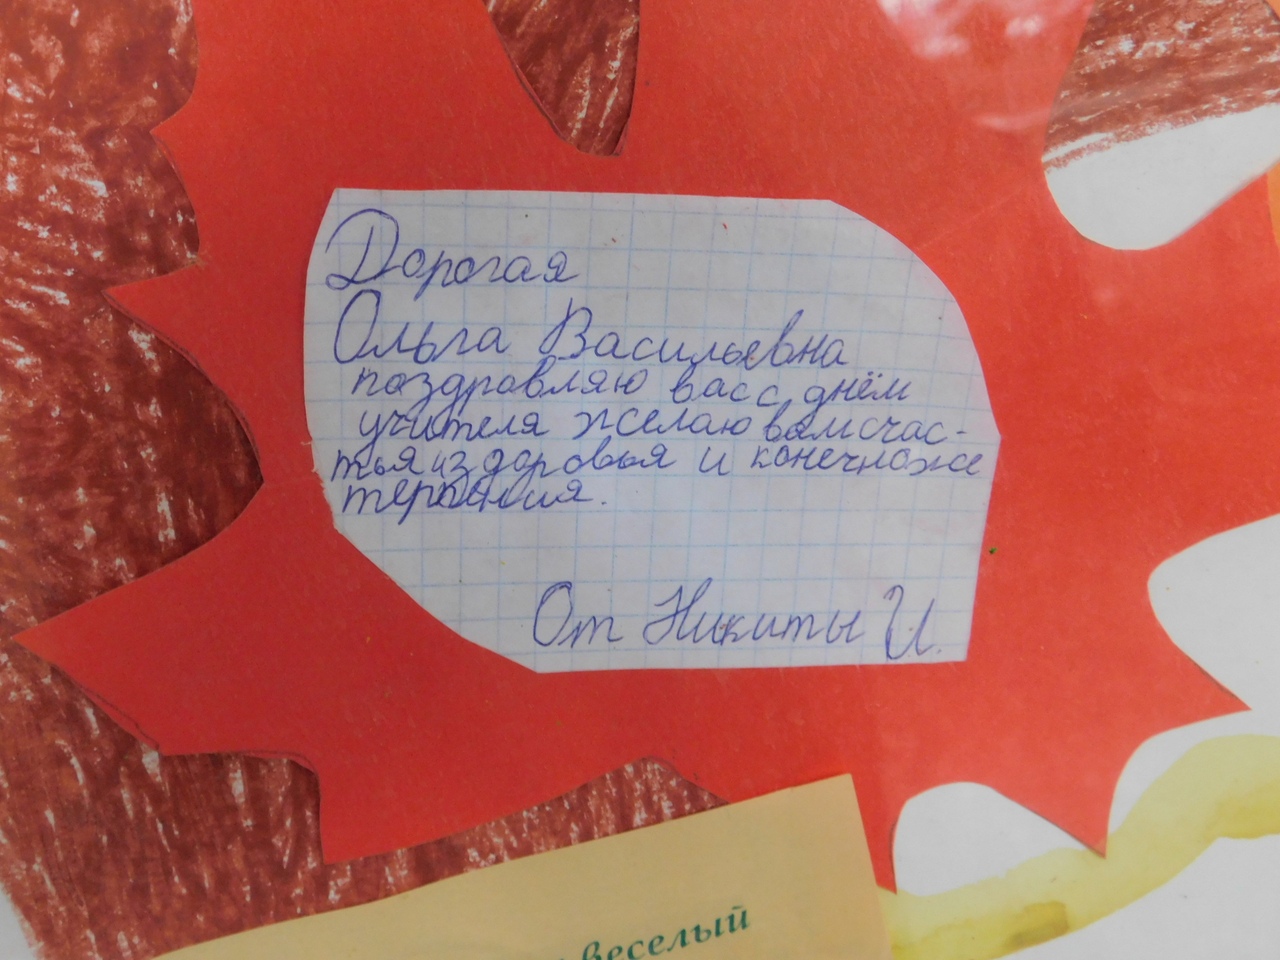 Дорогая
Ольга Васильевна
поздравляю вас с днём
учителя желаю вам счас-
тья и здоровья и конечно же
терпения.
От Никиты И.
веселый